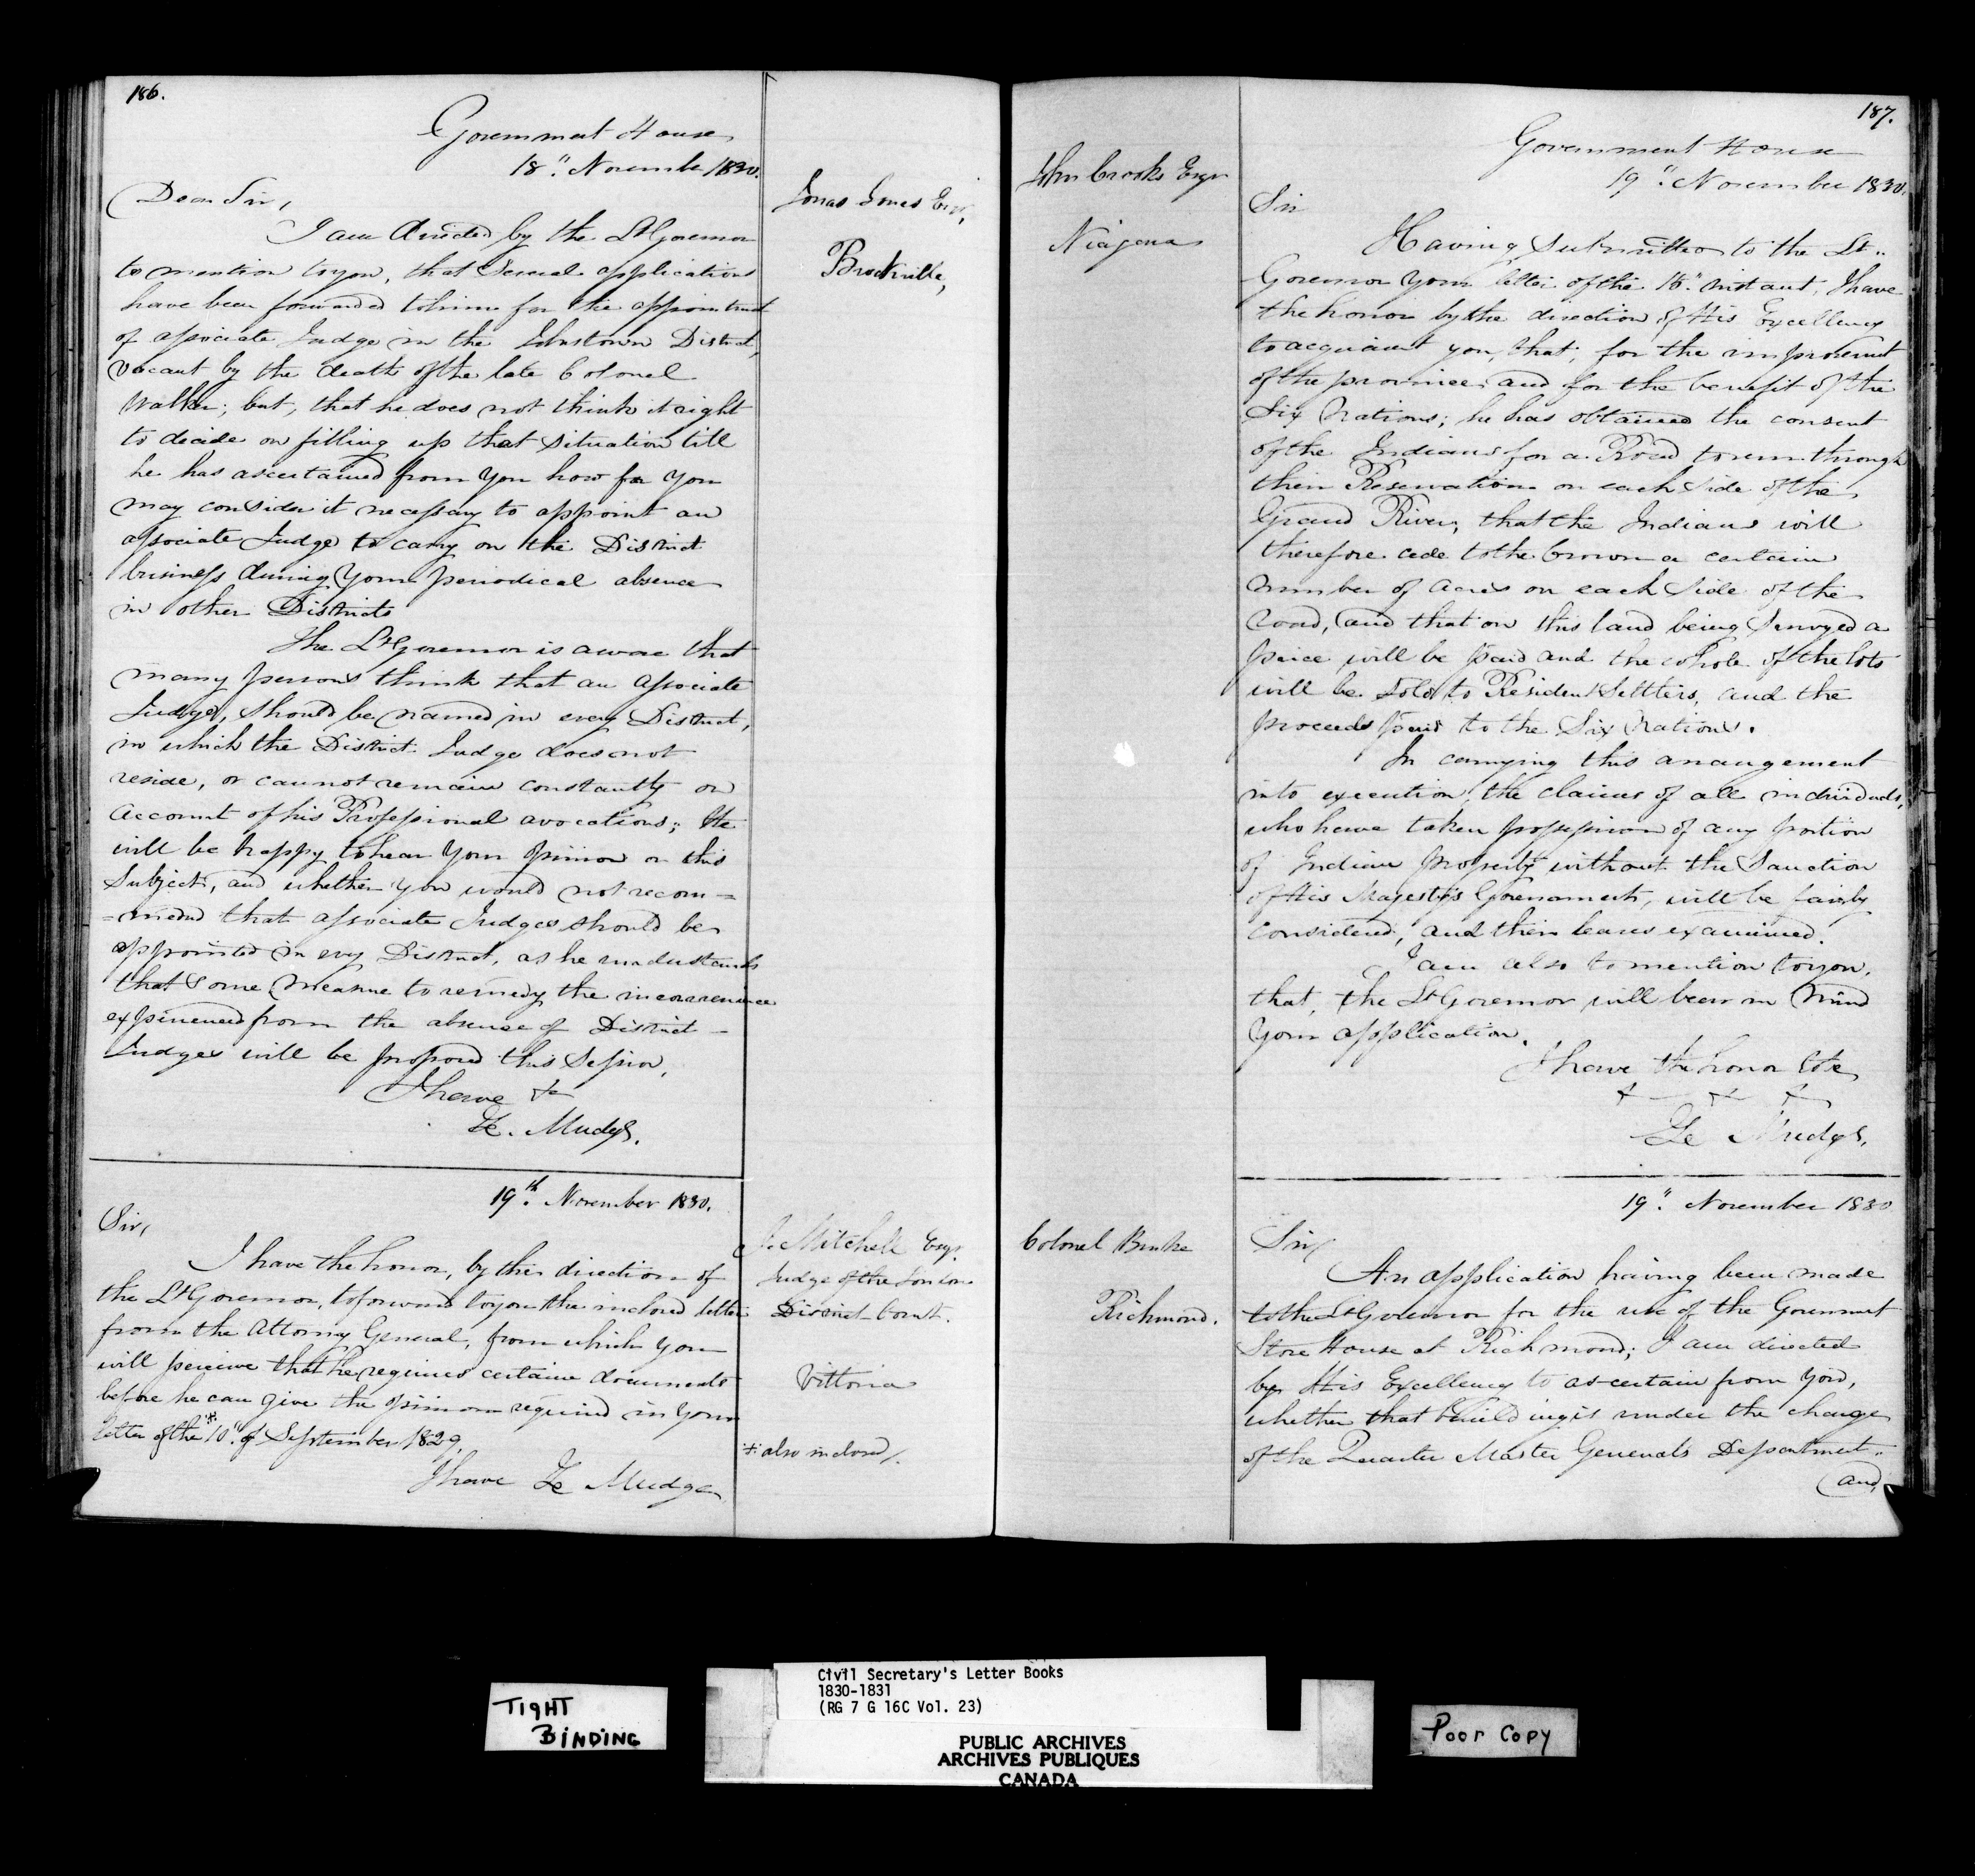 186.
Government House
18" November 1830.
Jonas Jones Esqr,
Brockville,
Dear Sir,
I am directed by the Lt Governor
to mention to you, that several applications
have been forwarded to him for the appointment
of associate Judge in the Johnstown District,
vacant by the death of the late Colonel
Walker; but, that he does not think it right
to decide on filling up that situation till
he has ascertained from you how far you
may consider it necessary to appoint an
associate Judge to carry on the District
business during your periodical absence
in other Districts
The Lt Governor is aware that
many persons think that an associate
Judge, should be named in every District,
in which the District Judge does not
reside, or cannot remain constantly on
account of his Professional avocations; He
will be happy to hear your opinion on this
subject, and whether you would not recom=
=mend that associate Judges should be
appointed in evry District, as he understands
that some measure to remedy the inconvenience
experienced from the absence of District
Judges will be proposed this Session,
I have &c
Z. Mudge.
19th. November 1830.
J. Mitchell Esqr.
Judge of the London
District Court.
Vittoria
Sir,
I have the honor, by the direction of
the Lt Governor, to forward to you the inclosed letter
from the Attorney General, from which you
will perceive that he requires certain documents
before he can give the opinion required in your
letter of the * 10". of September 1829.
* also inclosed/.
I have Ze Mudge
187.
Government House
19" November 1830.
John Crooks Esqr
Niagara
Sir
Having submitted to the Lt.
Governor your letter of the 16" instant, I have
the honor by the direction of His Excellency
to acquaint you, that, for the improvement
of the province, and for the benefit of the
Six Nations; he has obtained the consent
of the Indians for a Road to run through
their Reservation on each side of the
Grand River, that the Indians will
therefore cede to the Crown a certain
number of acres on each side of the
road, and that on this land being surveyed a
price will be paid and the whole of the lots
will be sold to Resident Settlers, and the
proceeds paid to the Six Nations.
In carrying this arrangement
into execution, the claims of all individuals,
who have taken possession of any portion
of Indian property without the sanction
of His Majesty's Government, will be fairly
considered, and their leases examined.
I am also to mention to you,
that, the Lt Governor will bear in mind
your application.
I have the honor to be
&c &c &c
Ze Mudge,
19". November 1830
Colonel Burke
Richmond.
Sir,
An application having been made
to the Lt Governor for the use of the Government
Store House at Richmond; I am directed
by His Excellency to ascertain from you,
whether that building is under the charge
of the Quarter Master Generals Department..
and,
TIGHT
BINDING
Civil Secretary's Letter Books
1830-1831
(RG 7 G 16C Vol. 23)
PUBLIC ARCHIVES
ARCHIVES PUBLIQUES
CANADA
Poor Copy